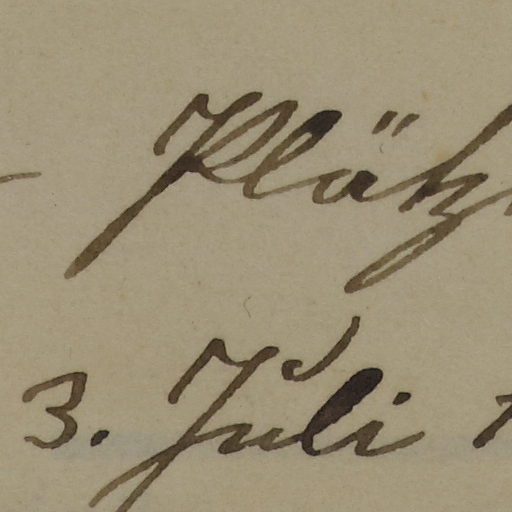 Plätz
3. Juli 1